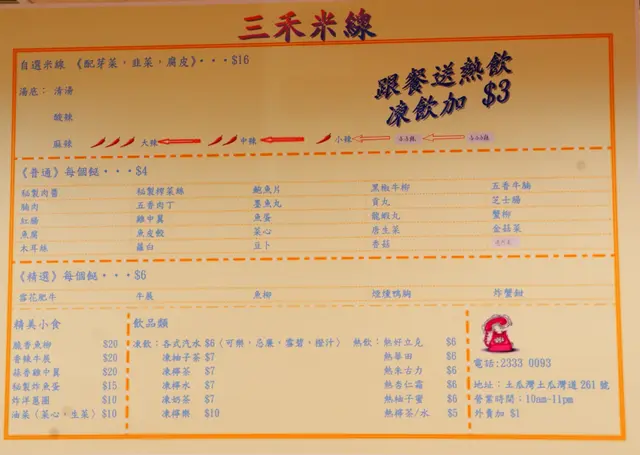 三禾米線
自選米線 《配芽菜，韭菜，腐皮》···$16
跟餐送熱飲
凍飲加 $3
湯底： 清湯
酸辣
麻辣 大辣 中辣 小辣
《普通》每個餸···$4
秘製肉醬 秘製榨菜絲 鮑魚片 黑椒牛柳 五香牛腩
腩肉 五香肉丁 墨魚丸 貢丸 芝士腸
紅腸 雞中翼 魚蛋 龍蝦丸 蟹柳
魚腐 魚皮餃 菜心 唐生菜 金菇菜
木耳絲 蘿白 豆卜 香菇
《精選》每個餸···$6
雪花肥牛 牛展 魚柳 煙燻鴨胸 炸蟹鉗
精美小食
脆香魚柳 $20
香辣牛展 $20
蒜香雞中翼 $20
秘製炸魚蛋 $15
炸洋蔥圈 $10
油菜（菜心，生菜）$10
飲品類
凍飲：各式汽水 $6（可樂，忌廉，雪碧，橙汁）
凍柚子茶 $7
凍檸茶 $7
凍檸水 $7
凍奶茶 $7
凍檸樂 $10
熱飲：熱好立克 $6
熱華田 $6
熱朱古力 $6
熱杏仁霜 $6
熱柚子蜜 $6
熱檸茶/水 $5
電話:2333 0093
地址：土瓜灣土瓜灣道261號
營業時間：10am-11pm
外賣加 $1